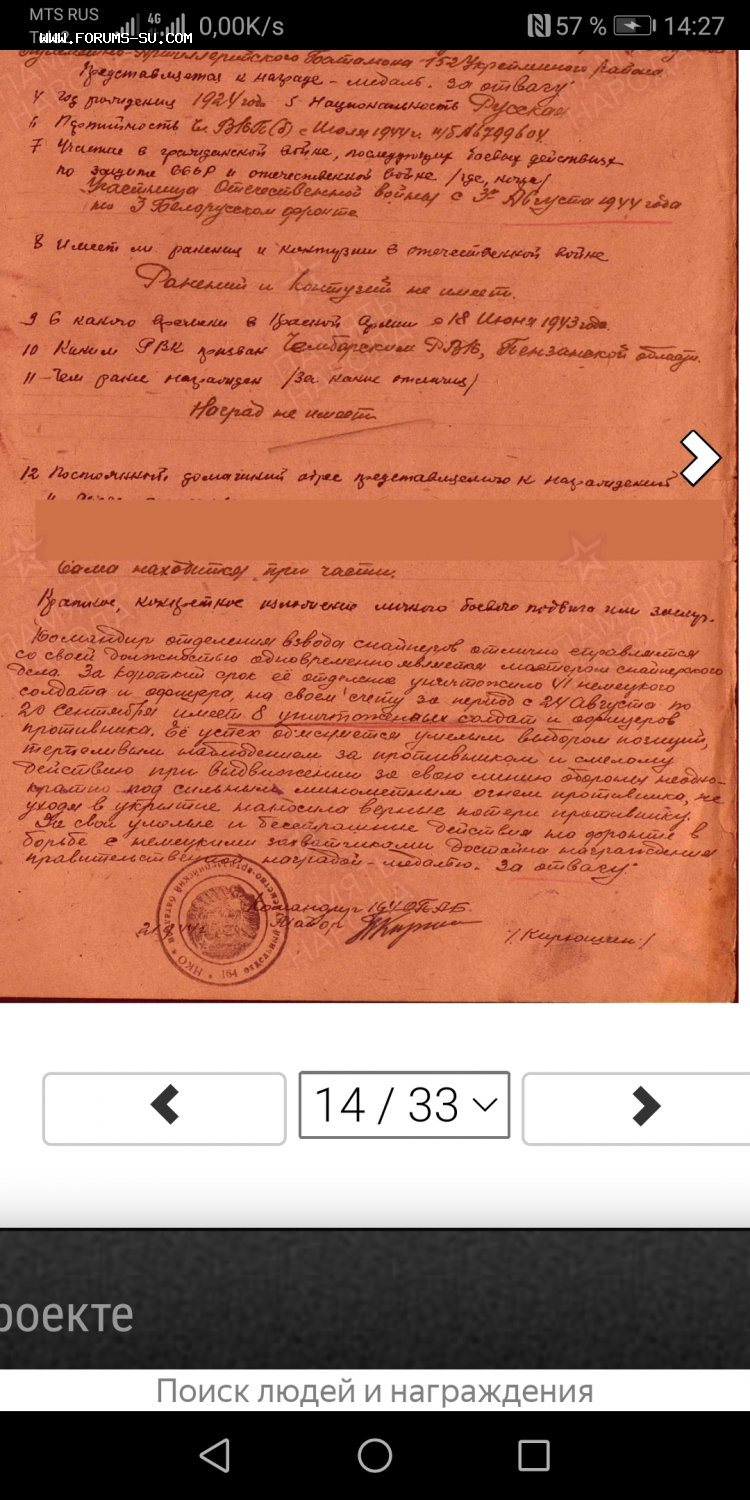 MTS RUS
4G
0,00K/s
57 %
14:27
WWW.FORUMS-SU.COM
Артиллерийского Батальона 152 Укрепленного района
Представляется к награде - медаль "За отвагу"
4 Год рождения 1924 года 5 Национальность Русская
6 Партийность Чл. ВКП(б) с Июля 1944 г.
7 Участие в гражданской войне, последующих боевых действиях
по защите СССР и отечественной войне /где, когда/
Участница Отечественной войны с 3го Августа 1944 года
на 3 Белорусском фронте
8 Имеет ли ранения и контузии в отечественной войне
Ранений и Контузий не имеет.
9 С какого времени в Красной Армии с 18 Июня 1943 года.
10 Каким РВК призван Чембарским РВК, Пензенской области.
11 Чем ранее награжден /За какие отличия/
Наград не имеет
12 Постоянный домашний адрес представляемого к награждению
Сама находится при части.
Краткое, конкретное изложение личного боевого подвига или заслуг.
Командир отделения взвода снайперов отлично справляется
со своей должностью одновременно является мастером снайперского
дела. За короткий срок её отделение уничтожило немецкого
солдата и офицера, на своем счету за период с 24 Августа по
20 Сентября имеет 8 уничтоженных солдат и офицеров
противника. Её успех объясняется умелым выбором позиций,
терпеливым наблюдением за противником и смелому
действию при выдвижении за свою линию обороны неодно-
кратно под сильным минометным огнем противника, не
уходя в укрытие наносила верные потери противнику.
За свои умелые и бесстрашные действия на фронте в
борьбе с немецкими захватчиками достойна награждения
правительственной наградой - медалью "За отвагу"
Командир
Майор
/Кирюшин/
НКО * 164 отдельный
14 / 33
роекте
Поиск людей и награждения